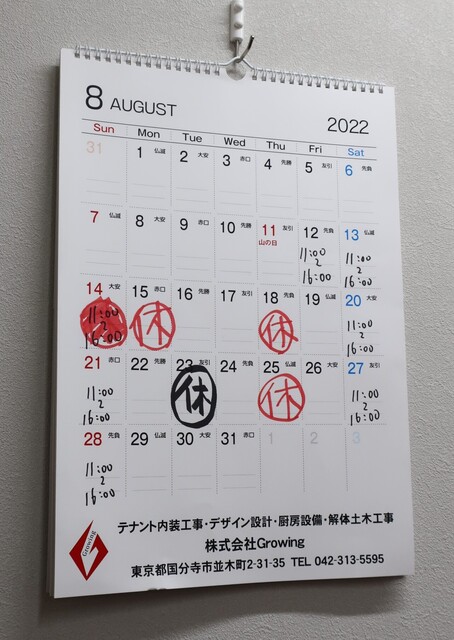 8 AUGUST
2022
Sun Mon Tue Wed Thu Fri Sat
31 1 仏滅 2 大安 3 赤口 4 先勝 5 友引 6 先負
7 仏滅 8 大安 9 赤口 10 先勝 11 友引 12 先負 13 仏滅
山の日
11:00 11:00
2 2
16:00 16:00
14 大安 15 赤口 16 先勝 17 友引 18 先負 19 仏滅 20 大安
11:00 休 休 11:00
2 2
16:00 16:00
21 赤口 22 先勝 23 友引 24 先負 25 仏滅 26 大安 27 友引
11:00 休 休 11:00
2 2
16:00 16:00
28 先負 29 仏滅 30 大安 31 赤口 1 2 3
11:00
2
16:00
Growing
テナント内装工事・デザイン設計・厨房設備・解体土木工事
株式会社Growing
東京都国分寺市並木町2-31-35 TEL 042-313-5595